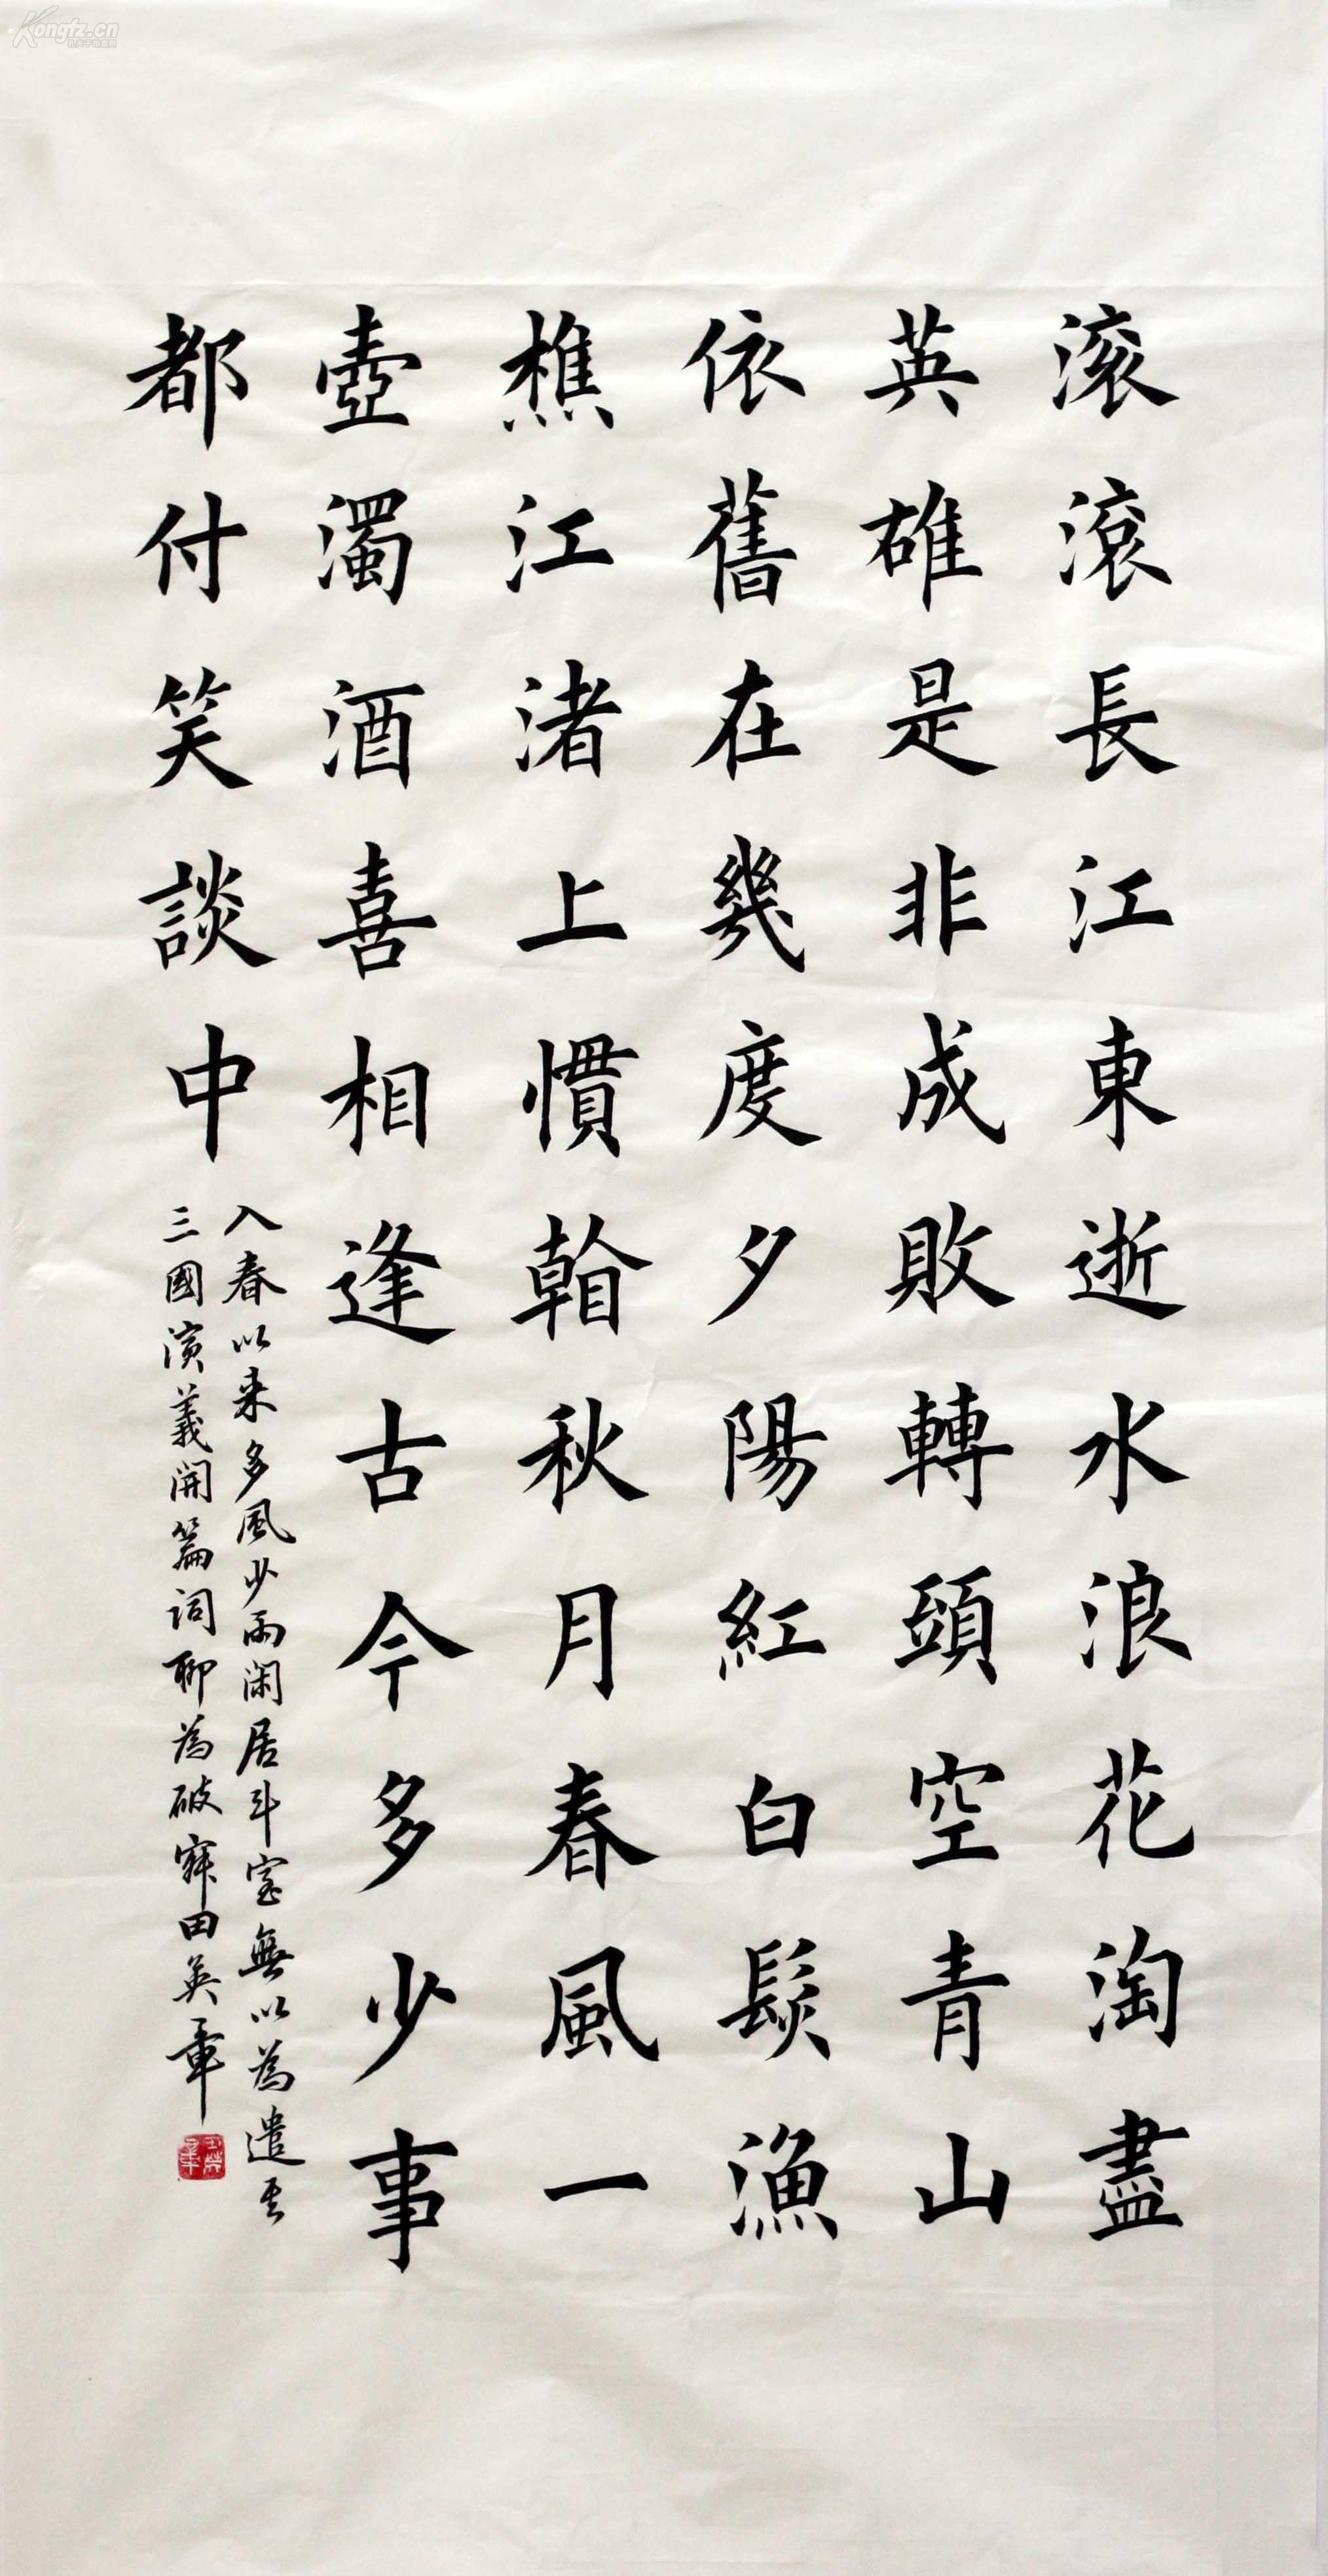 滚滾長江東逝水浪花淘盡
英雄是非成敗轉頭空青山
依舊在幾度夕陽紅白髮漁
樵江渚上慣看秋月春風一
壺濁酒喜相逢古今多少事
都付笑談中
入春以来多風少雨闲居斗室無以為遣
三國演義開篇詞聊為破寐田英章
Kongfz.cn